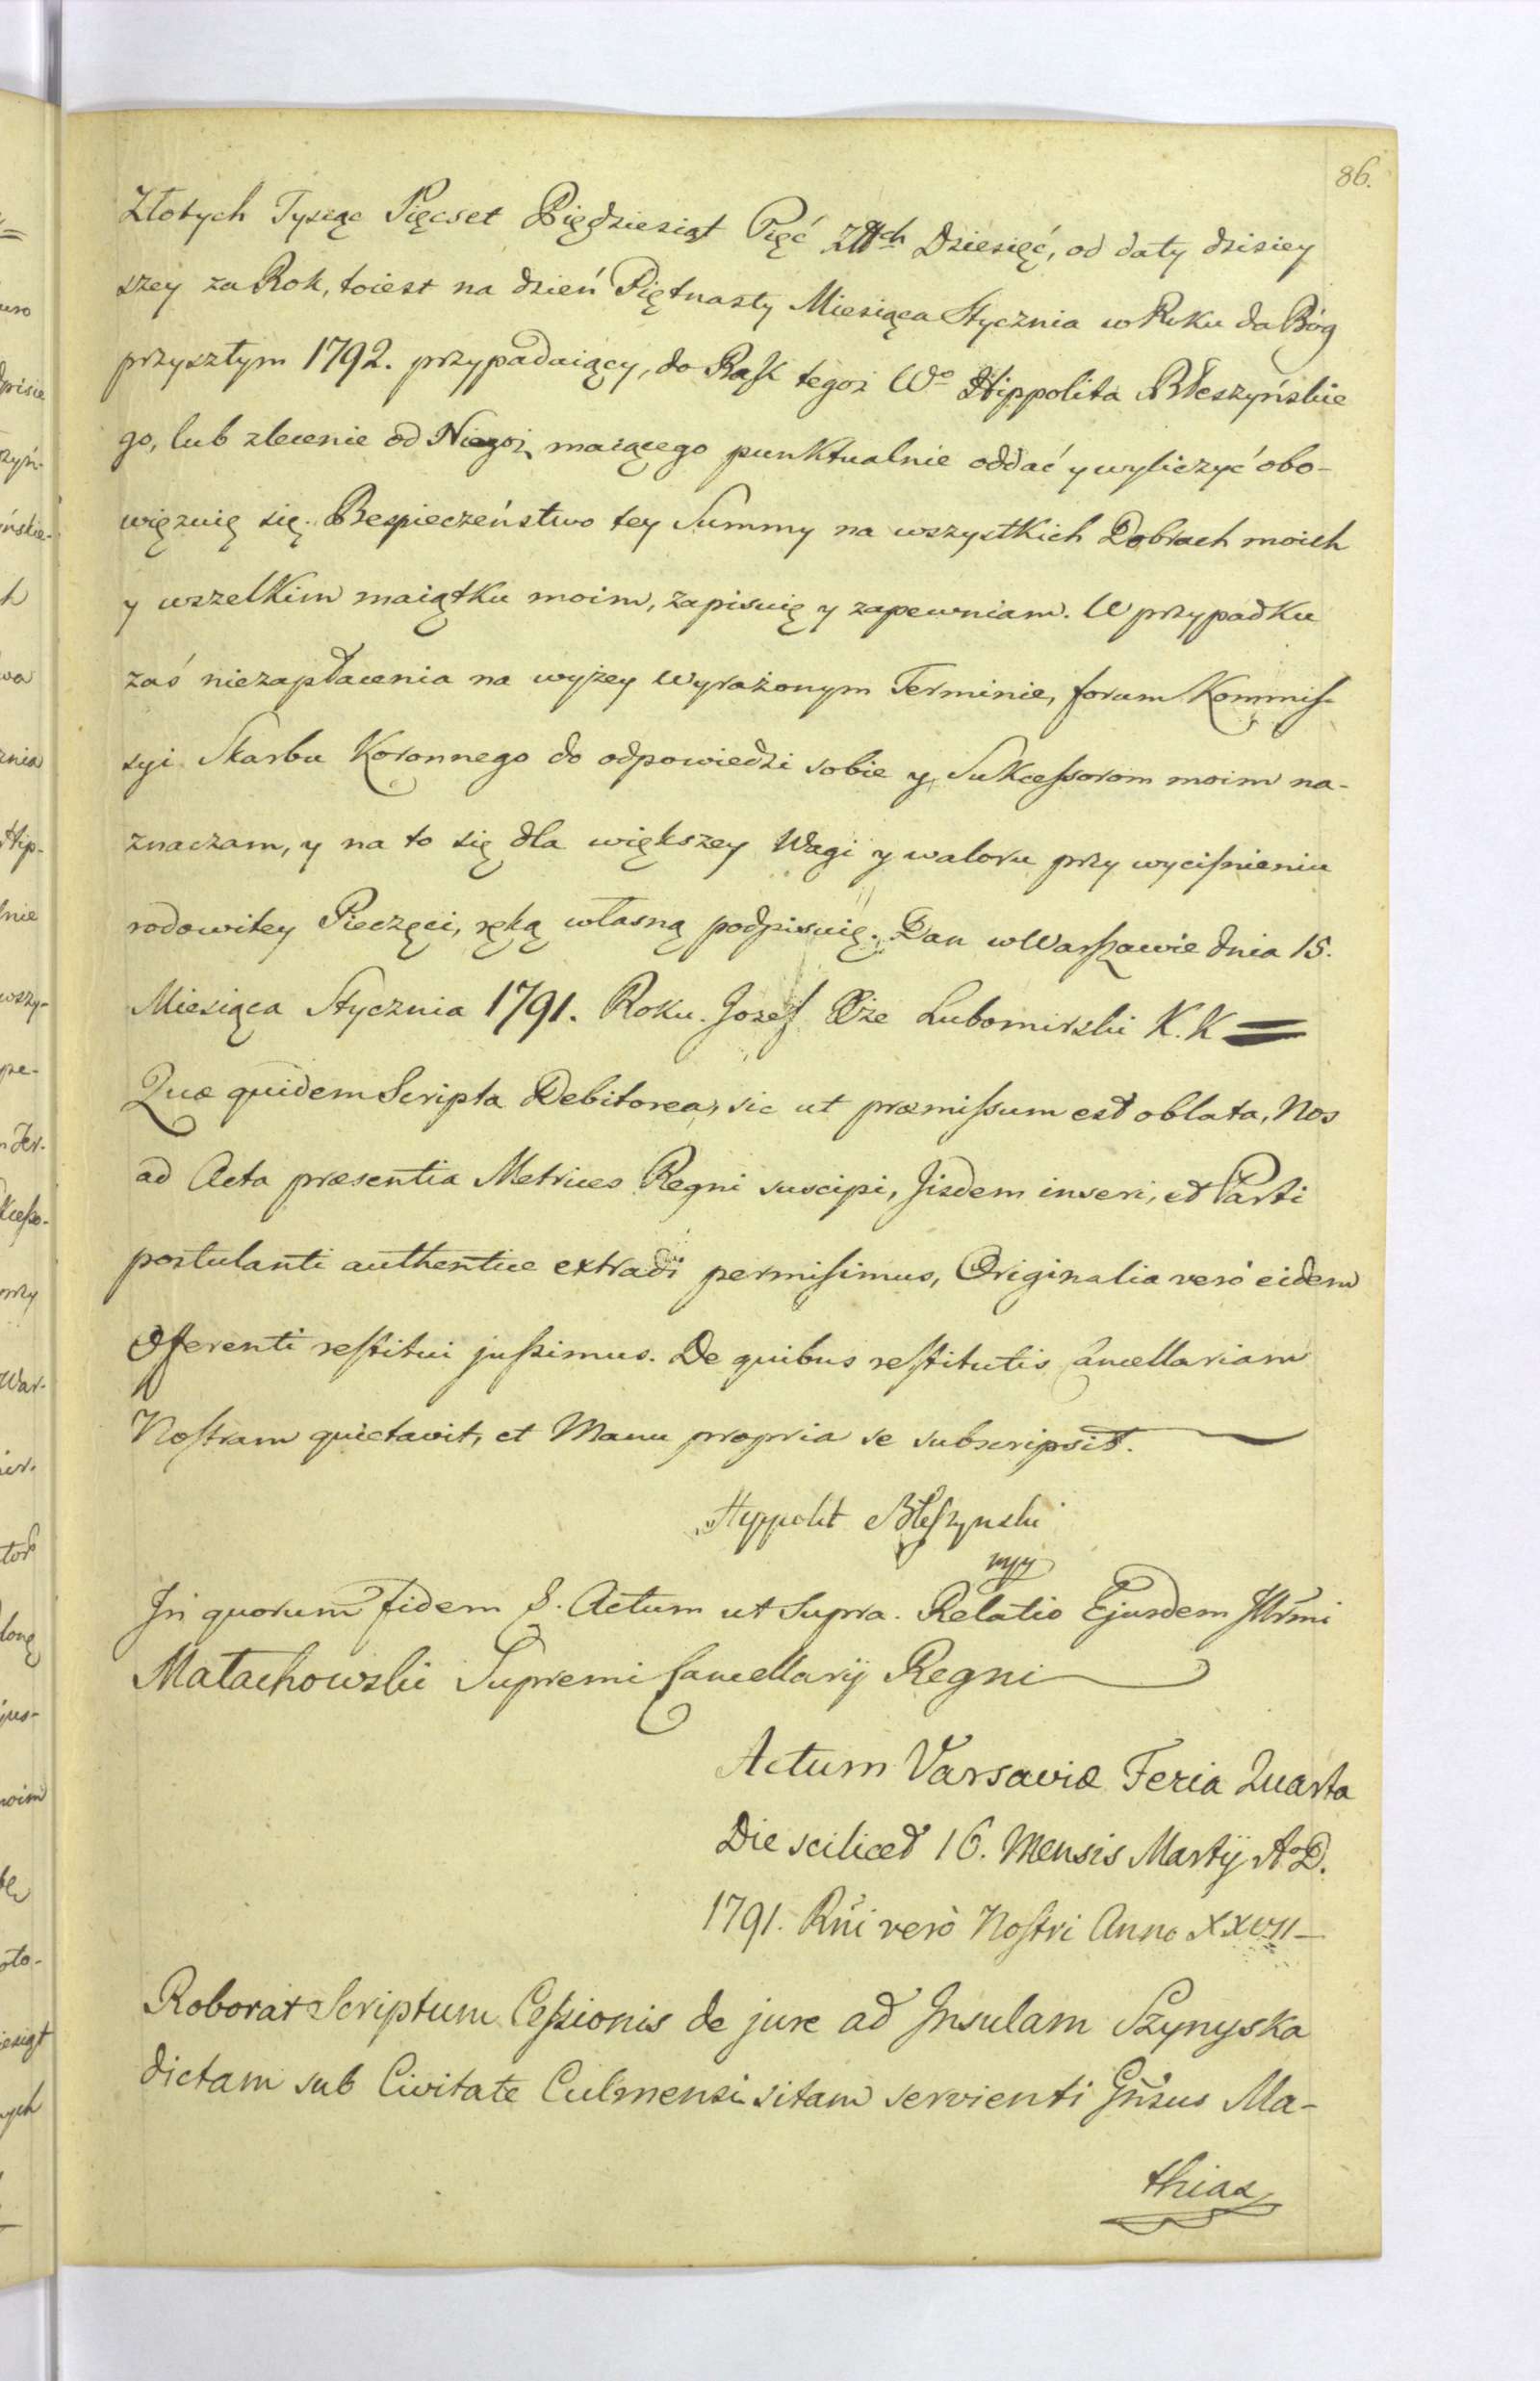 86.
Złotych Tysiąc Pięcset Pięgdziesiąt Pięć Złłch Dziesięć, od daty dzisiey
szey za Rok, toiest na dzień Piętnasty Miesiąca Stycznia w Roku da Bóg
przyszłym 1792. przypadaiący, do Rąk tegoż Wo Hippolita Błeszyńskie
go, lub zlecenie od Niegoż maiącego punktualnie oddać y wyliczyć obo-
więzuię się. Bespieczeństwo tey Summy na wszystkich Dobrach moich
y wszelkim maiątku moim, zapisuię y zapewniam. W przypadku
zaś niezapłacenia na wyżey wyrażonym Terminie, forum Kommis-
syi Skarbu Koronnego do odpowiedzi sobie y Sukcessorom moim na-
znaczam, y na to się dla większey Wagi y waloru przy wyciśnieniu
rodowitey Pieczęci, ręką własną podpisuię. Dan w Warszawie dnia 15.
Miesiąca Stycznia 1791. Roku. Jozef Xże Lubomirski K. K =
Quæ quidem Scripta Debitorea, sic ut præmissum est oblata, Nos
ad Acta præsentia Metrices Regni suscipi, Jisdem inseri, et Parti
postulanti authentice extradi permisimus, Originalia verò eidem
Offerenti restitui jussimus. De quibus restitutis Cancellariam
Nostram quietavit, et Manu propria se subscripsit.
Hyppolit Błeszynski
mpp
In quorum fidem &. Actum ut supra. Relatio Ejusdem Illrmi
Małachowski Supremi Cancellarij Regni
Actum Varsaviæ Feria Quarta
Die scilicet 16. Mensis Martij AoD.
1791. Rni verò Nostri Anno XXVII
Roborat Scriptum Cessionis de jure ad Insulam Szynyska
dictam sub Civitate Culmensi sitam servienti Gnsus Ma-
thias